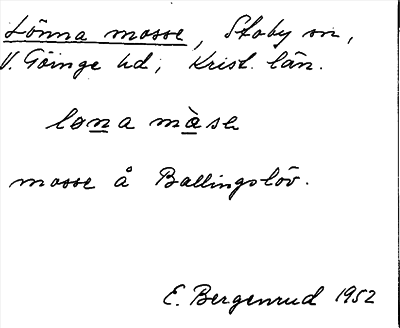 Lönna mosse, Stoby sn,
V. Göinge hd, Krist. län.
lona màse
mosse å Ballingslöv.
E. Bergenrud 1952